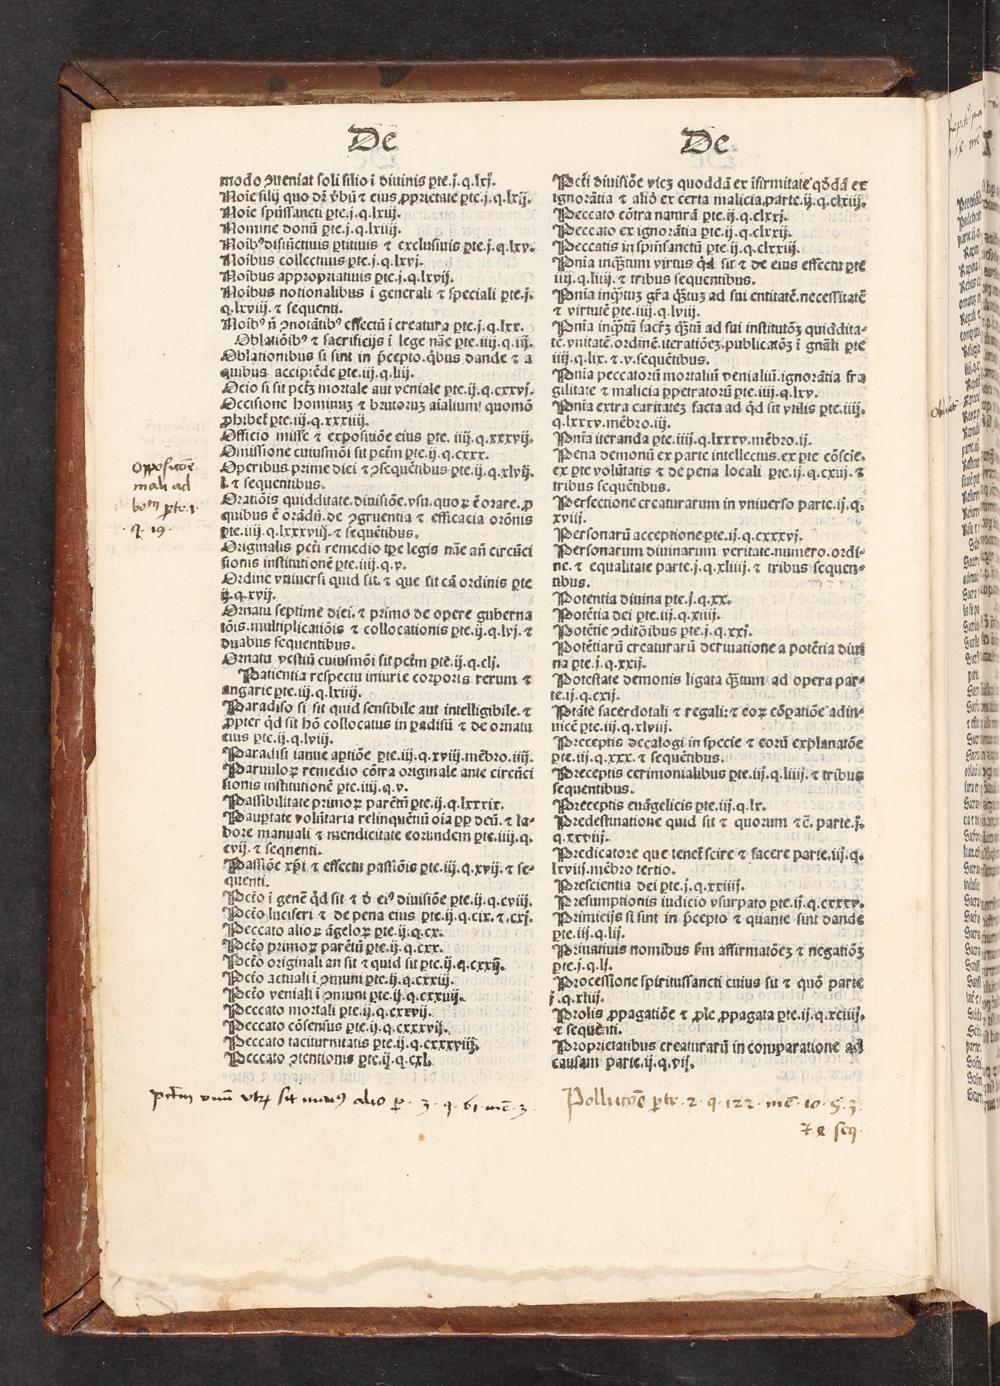 De
modo ꝯueniat soli filio ī diuinis ꝑte.j.q.lxj.
Noīe filij quo dr̄ v̄bū ⁊ eius ꝓprietate ꝑte.j.q.lxij.
Noīe spūssancti ꝑte.j.q.lxiij.
Nomine donū ꝑte.j.q.lxiiij.
Noībꝰ distinctiuis ꝑtitiuis ⁊ exclusiuis ꝑte.j.q.lxv.
Noībus collectiuis ꝑte.j.q.lxvj.
Noībus appropriatiuis ꝑte.j.q.lxvij.
Noībus notionalibus ī generali ⁊ speciali ꝑte.j.
q.lxviij. ⁊ sequenti.
Noībꝰ ꝯnotātibꝰ effectū ī creatura ꝑte.j.q.lxx.
Oblatiōibꝰ ⁊ sacrificijs ī lege nāe ꝑte.iiij.q.iij.
Oblationibus si sint in p̄cepto.q̄bus dande ⁊ a
quibus accipiēde ꝑte.iij.q.lij.
Ocio si sit pctm̄ mortale aut veniale ꝑte.ij.q.cxxvj.
Occisione hominuꝫ ⁊ brutoruꝫ aīalium quomō
ꝓhibet̄ ꝑte.iij.q.xxxiiij.
Officio misse ⁊ expositiōe eius ꝑte. iiij.q.xxxvij.
Omissione cuiusmōi sit pctm̄ ꝑte.ij.q.cxxx.
Operibus prime diei ⁊ ꝯsequētibus ꝑte.ij.q.xlvij.
⁊ sequentibus.
Oratiōis quidditate.diuisiōe.vsu.quoꝝ ē orare.ꝓ
quibus ē orādū.de ꝯgruentia ⁊ efficacia orōnis
ꝑte.iiij.q.lxxxviij.⁊ sequētibus.
Originalis pcti remedio tꝑe legis nāe an̄ circūci
sionis institutionē ꝑte.iiij.q.v.
Ordine vniuersi quid sit.⁊ que sit cā ordinis ꝑte
ij.q.xvij.
Ornatu septime diei.⁊ primo de opere guberna
tōis.multiplicatiōis ⁊ collocationis ꝑte.ij.q.lvj.⁊
duabus sequentibus.
Ornatu vestiū cuiusmōi sit pctm̄ ꝑte.ij.q.clj.
Patientia respectu iniurie corporis rerum ⁊
angarie ꝑte.iij.q.lxiiij.
Paradiso si sit quid sensibile aut intelligibile.⁊
ꝓpter qd̄ sit hō collocatus in ꝑadisū ⁊ de ornatu
eius ꝑte.ij.q.lviij.
Paradisi ianue aꝑtiōe ꝑte.iij.q.xviij.mēbro.iiij.
Paruuloꝝ remedio cōtra originale ante circūci
sionis institutionē ꝑte.iiij.q.v.
Passibilitate primoꝝ parētū ꝑte.ij.q.lxxxix.
Pauꝑtate volūtaria relinquētiū oīa ꝓp deū.⁊ la-
bore manuali ⁊ mendicitate eorundem ꝑte.iiij.q.
cvij.⁊ sequenti.
Passiōe xp̄i ⁊ effectu passiōis ꝑte.iij.q.xvij.⁊ se-
quenti.
Pctō ī genē qd̄ sit ⁊ d̄ eiꝰ diuisiōe ꝑte.ij.q.cviij.
Pctō luciferi ⁊ de pena eius ꝑte.ij.q.cix.⁊.cxj.
Peccato alioꝝ āgeloꝝ ꝑte.ij.q.cx.
Pctō primoꝝ parētū ꝑte.ij.q.cxx.
Pctō originali an sit ⁊ quid sit ꝑte.ij.q.cxxij.
Pctō actuali ī ꝯmuni ꝑte.ij.q.cxxiij.
Pctō veniali ī ꝯmuni ꝑte.ij.q.cxxiiij.
Peccato mortali ꝑte.ij.q.cxxvij.
Peccato cōsensus ꝑte.ij.q.cxxxvij.
Peccato taciturnitatis ꝑte.ij.q.cxxxviij.
Peccato ꝯtentionis ꝑte.ij.q.cxl.
oppositōe
mali ad
bom ꝑte.1.
.q. 19.
pctm̄ vnū vtrꝫ sit maiꝰ alio p. 3. q. 61. mē. 3.
De
Pcti diuisiōe viciꝫ quoddā ex īfirmitate qd̄dā ex
ignorātia ⁊ aliō ex certa malicia.parte.ij.q.clxiij.
Peccato cōtra naturā ꝑte.ij.q.clxxj.
Peccato ex ignorātia ꝑte.ij.q.clxxij.
Peccatis in spūsanctū ꝑte.ij.q.clxxiij.
Pnīa inqꝫtum virtus qd̄ sit ⁊ de eius effectu ꝑte
iiij.q.liiij.⁊ tribus sequentibus.
Pnīa inqꝫtuꝫ gr̄a qꝫtuꝫ ad sui entitatē.necessitatē
⁊ virtutē ꝑte.iiij.q.lviij.
Pnīa inqꝫtū sacr̄ꝫ qꝫtū ad sui institutōꝫ quiddita-
tē.vnitatē.ordinē.iteratiōeꝫ.publicatōꝫ ī gnāli ꝑte
iiij.q.lix.⁊.v.sequētibus.
Pnīa peccatorū mortaliū venialiū.ignorātia fra
gilitate ⁊ malicia ꝑpetratorū ꝑte.iiij.q.lxv.
Pnīa extra caritateꝫ facta ad qd̄ sit vtilis ꝑte.iiij.
q.lxxxv.mēbro.iij.
Pnīa iteranda ꝑte.iiij.q.lxxxv.mēbro.ij.
Pena demonū ex parte intellectus.ex ꝑte cōscie.
ex ꝑte volūtatis ⁊ de pena locali ꝑte.ij.q.cxiij.⁊
tribus sequētibus.
Perfectione creaturarum in vniuerso parte.ij.q.
xviij.
Personarū acceptione ꝑte.ij.q.cxxxvj.
Personarum diuinarum veritate.numero.ordi-
ne.⁊ equalitate parte.j.q.xliiij.⁊ tribus sequen-
tibus.
Potentia diuina ꝑte.j.q.xx.
Potētia dei ꝑte.iij.q.xiiij.
Potētie ꝯditōibus ꝑte.j.q.xxj.
Potētiarū creaturarū deriuatione a potētia diui
na ꝑte.j.q.xxij.
Potestate demonis ligata qꝫtum ad opera par-
te.ij.q.cxij.
Ptāte sacerdotali ⁊ regali:⁊ eoꝝ cōꝑatiōe adin-
uicē ꝑte.iij.q.xlviij.
Preceptis decalogi in specie ⁊ eorū explanatōe
ꝑte.iij.q.xxx.⁊ sequētibus.
Preceptis cerimonialibus ꝑte.iij.q.liiij.⁊ tribus
sequentibus.
Preceptis euāgelicis ꝑte.iij.q.lx.
Predestinatione quid sit ⁊ quorum ⁊c̄.parte.j.
q.xxviij.
Predicatore que tenet̄ scire ⁊ facere parte.iij.q.
lxviij.mēbro tertio.
Prescientia dei ꝑte.j.q.xxiiij.
Presumptionis iudicio vsurpato ꝑte.ij.q.cxxxv.
Primicijs si sunt in p̄cepto ⁊ quante sint dande
ꝑte.iij.q.lij.
Priuatiuis nomībus km̄ affirmatōeꝫ ⁊ negatiōꝫ
ꝑte.j.q.lj.
Processione spiritussancti cuius sit ⁊ quō parte
j.q.xliij.
Prolis ꝓpagatiōe ⁊ ꝓle ꝓpagata ꝑte.ij.q.xciiij.
⁊ sequēti.
Proprietatibus creaturarū in comparatione ad
causam parte.ij.q.vij.
Pollutōe ꝑte. 2. q. 122. mē. 10. §. 3.
⁊ 8. seq.